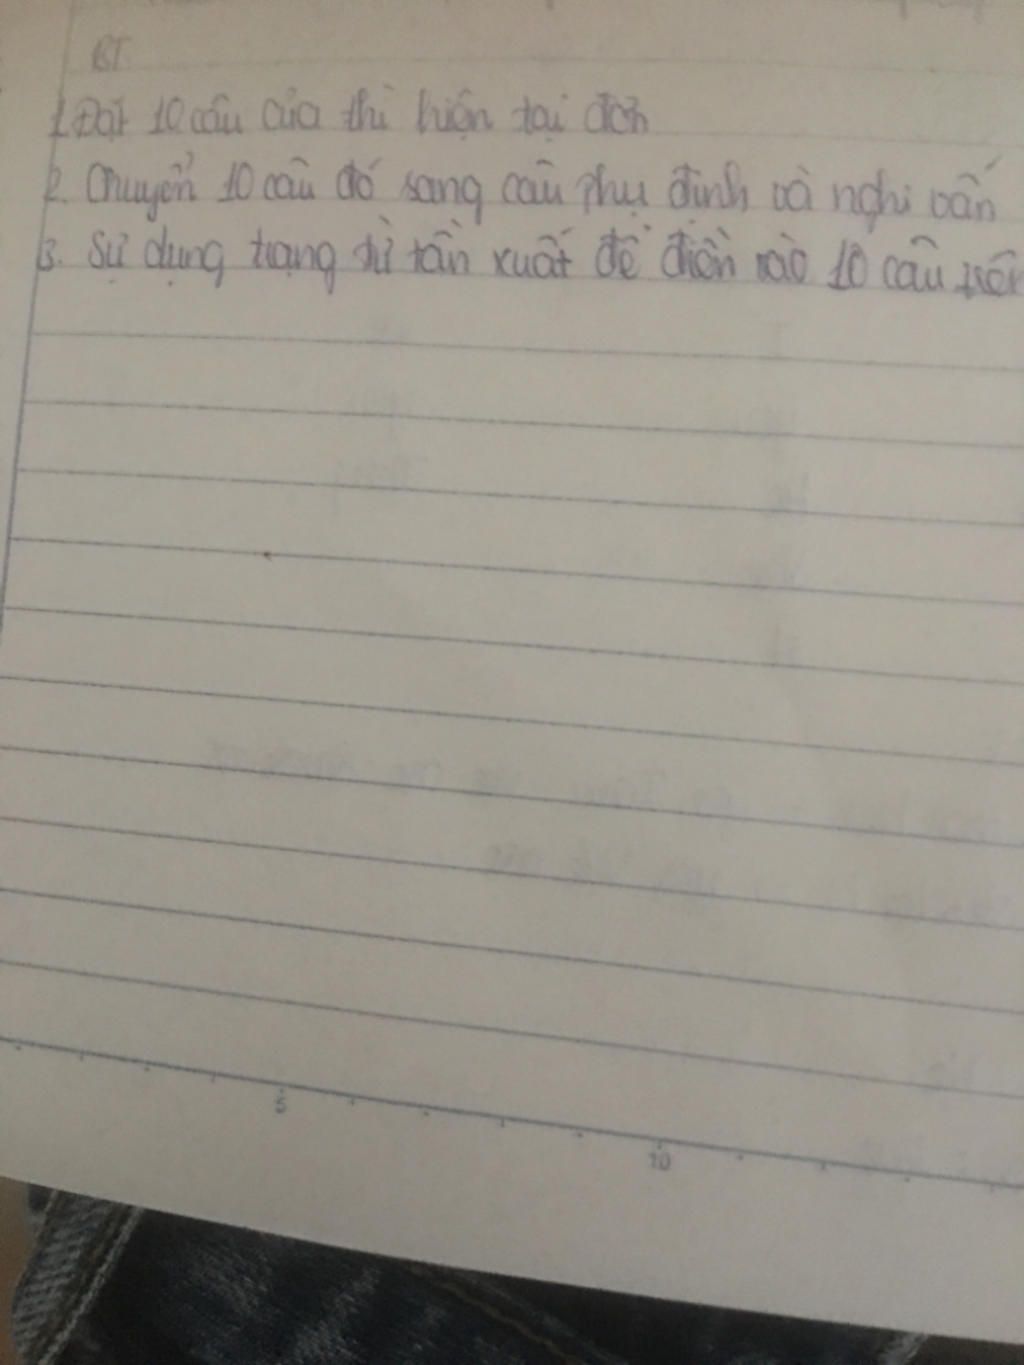 BT
1. Đặt 10 câu của thì hiện tại đơn
2. Chuyển 10 câu đó sang câu phụ định và nghi vấn
3. Sử dụng trạng từ tần xuất để điền vào 10 câu trên
5
10